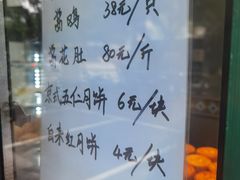 酱鸡 38元/只
酱花肚 80元/斤
京式五仁月饼 6元/块
自来红月饼 4元/块